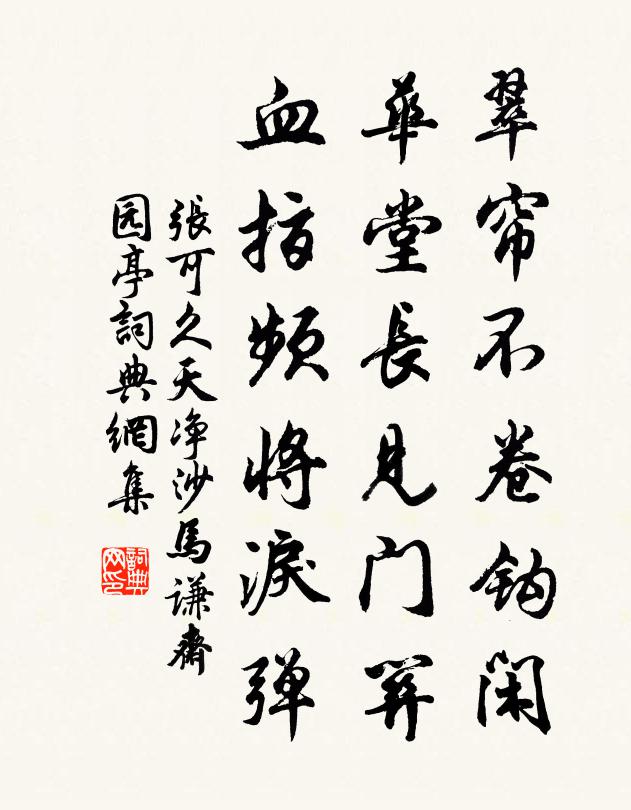 翠帘不卷钩闲
華堂長見门关
血指頻将淚弹
張可久天净沙馬謙齋
园亭詞典網集
詞典网印